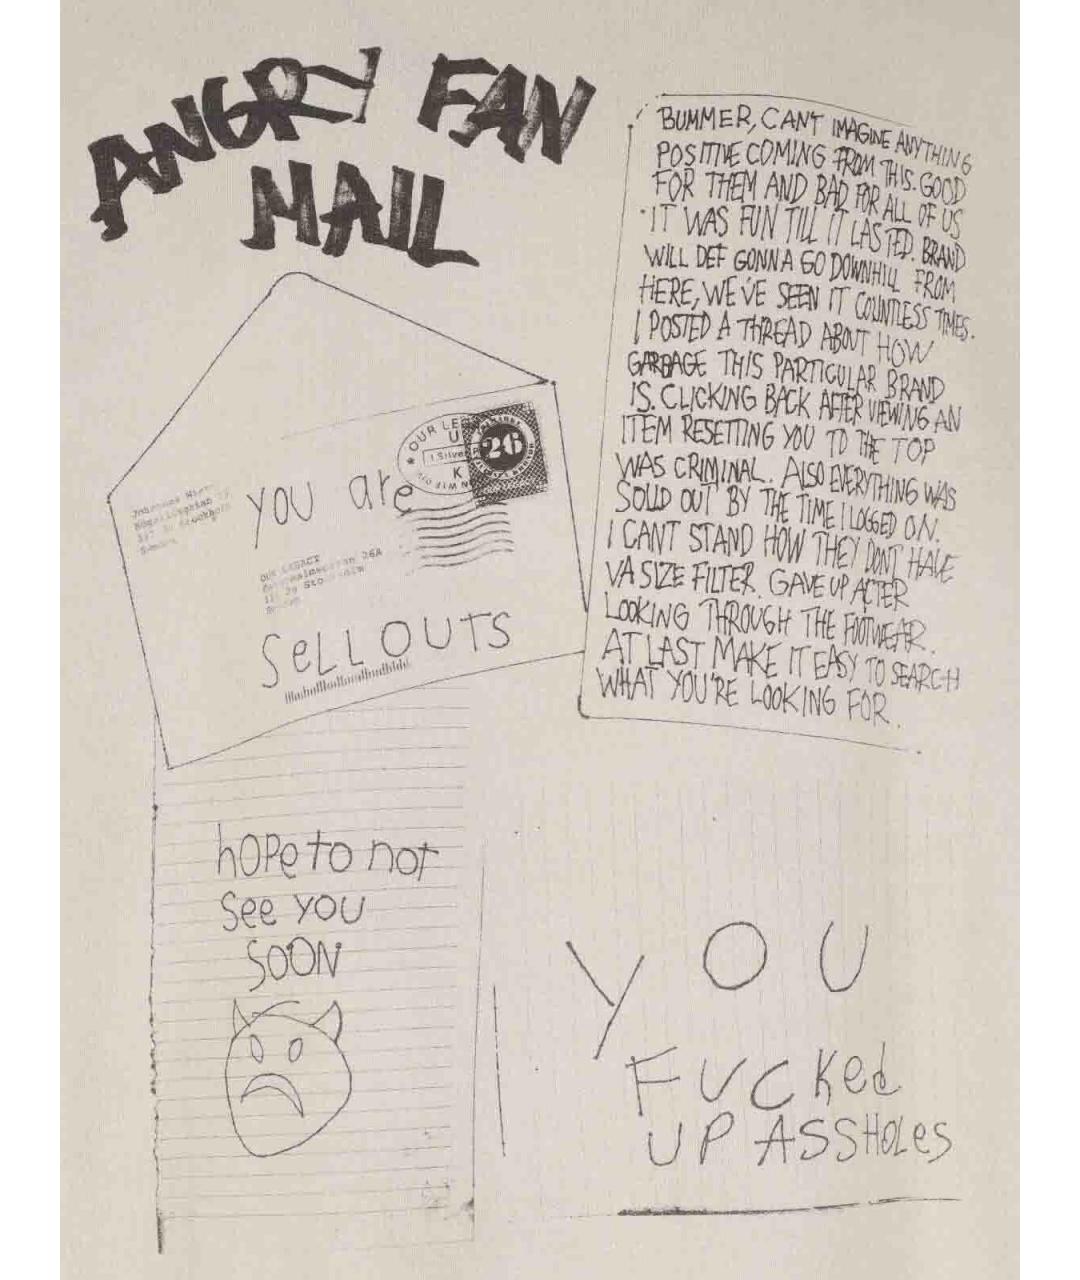 ANGRY FAN
MAIL
BUMMER, CAN'T IMAGINE ANYTHING
POSITIVE COMING FROM THIS. GOOD
FOR THEM AND BAD FOR ALL OF US
IT WAS FUN TILL IT LASTED. BRAND
WILL DEF GONNA GO DOWNHILL FROM
HERE, WE'VE SEEN IT COUNTLESS TIMES.
I POSTED A THREAD ABOUT HOW
GARBAGE THIS PARTICULAR BRAND
IS. CLICKING BACK AFTER VIEWING AN
ITEM RESETTING YOU TO THE TOP
WAS CRIMINAL. ALSO EVERYTHING WAS
SOLD OUT BY THE TIME I LOGGED ON.
I CANT STAND HOW THEY DON'T HAVE
VA SIZE FILTER. GAVE UP AFTER
LOOKING THROUGH THE FOOTWEAR.
AT LAST MAKE IT EASY TO SEARCH
WHAT YOU'RE LOOKING FOR.
OUR LE
U
1 Silver
K
26
YOU are
OUR LEGACY
26A
SeLLOUTS
hOPe to not
See YOU
SOON
YOU
FUCKed
UP ASSHOLes